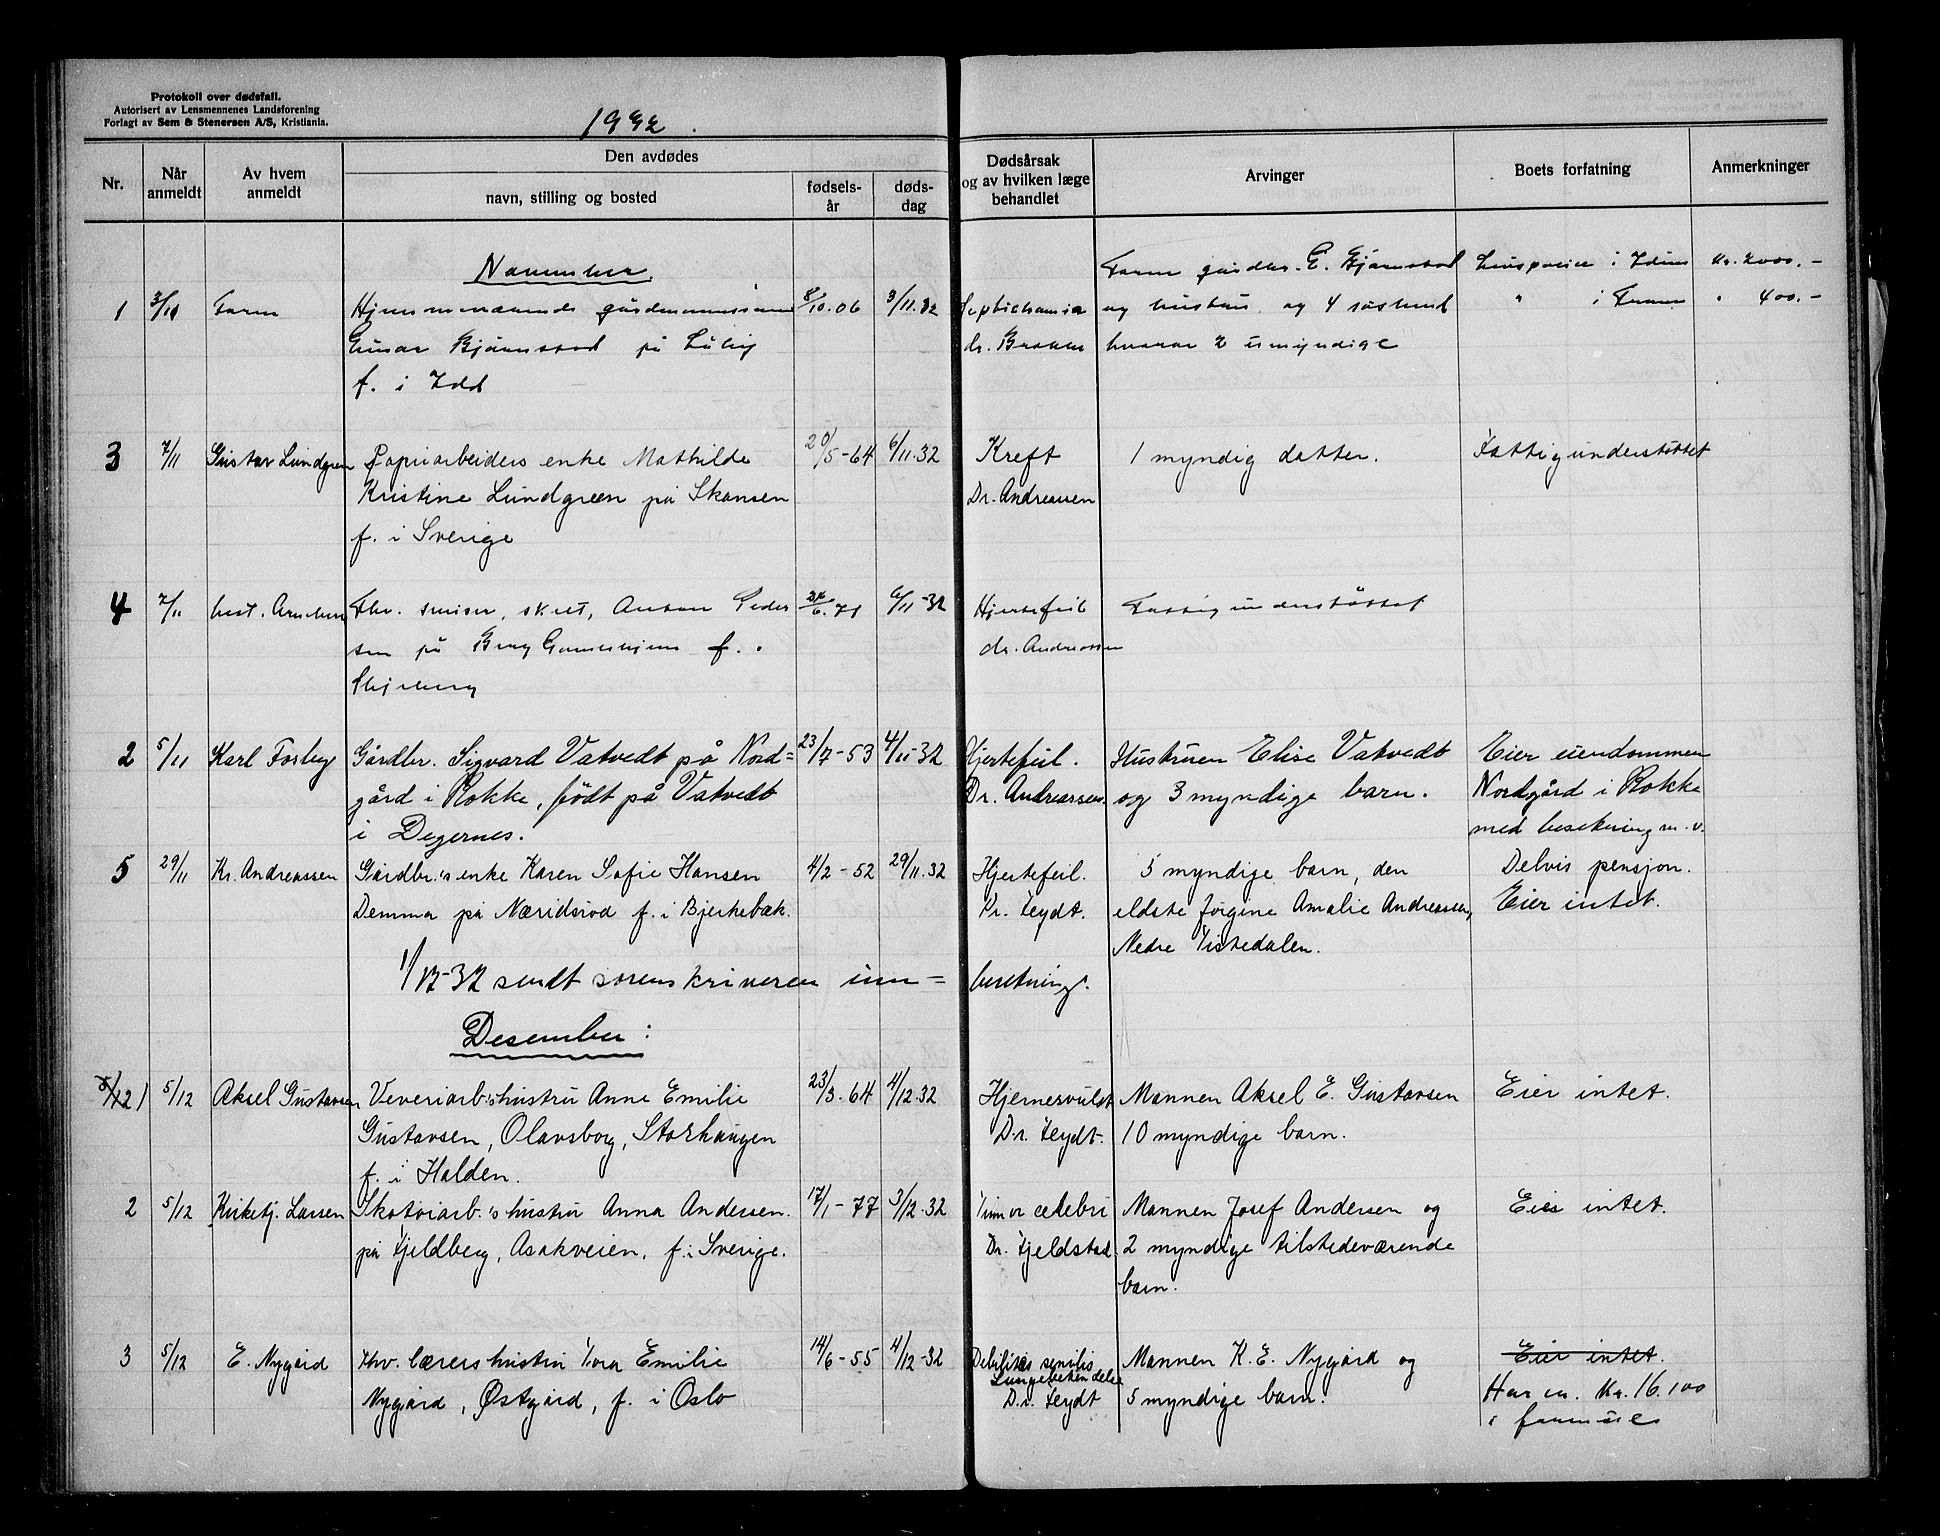 Protokoll over dødsfall.
Autorisert av Lensmennenes Landsforening
Forlagt av Sem & Stenersen A/S, Kristiania.
1932.
Nr.
Når anmeldt
Av hvem anmeldt
Den avdødes
navn, stilling og bosted
fødsels-år
døds-dag
Dødsårsak og av hvilken læge behandlet
Arvinger
Boets forfatning
Anmerkninger
November.
1 3/11 Faren Hjemmeværende gårdmannssønn 8/10.06 3/11.32
Einar Bjørnstad på
f. i Idd
dr. Braaten
Faren gårdbr. E. Bjørnstad
og hustru og 4 søskend
hvorav 2 umyndige
i Idum kr. 2000.-
" i " 400.-
3 7/11 Gustav Lundgren Papirarbeiders enke Mathilde 20/5-64 6/11.32 Kreft 1 myndig datter. Fattigunderstøttet
Kristine Lundgren på Skansen Dr. Andreassen
f. i Sverige
4 7/11 best. Fhv. skilt, Anton Peder 6.71 6/11-32 Hjertefeil Fattigunderstøttet
sen på Berg Gamlehjem f. i dr. Andreassen
Skjeberg
2 5/11 Karl Forberg Gårdbr. Sigvard Vatvedt på Nord= 23/7-53 4/11-32 Hjertefeil. Hustruen Elise Vatvedt Eier eiendommen
gård i Rokke, født på Vatvedt Dr. Andreassen. og 3 myndige barn. Nordgård i Rokke
i Degernes. med besetning m.v.
5 29/11 Kr. Andreassen Gårdbr.'s enke Karen Sofie Hansen 4/2-52 29/11.32 Hjertefeil. 5 myndige barn, den Delvis pensjon.
Demma på Næridsrød f. i Bjerkebæk. Dr. Feydt. eldste Jørgine Amalie Andreassen, Eier intet.
Nedre Tistedalen.
1/12-32 sendt sorenskriveren inn= beretning.
Desember:
1) 5/12 Aksel Gustavsen Veveriarb.'s hustru Anne Emilie 23/3.64 4/12.32 Hjernesvulst Mannen Aksel E. Gustavsen Eier intet.
Gustavsen, Olavsborg, Storhaugen Dr. Feydt. 10 myndige barn.
f. i Halden.
2 5/12 Kirketj. Larsen Skotøiarb.'s hustru Anna Andersen. 17/1-77 3/12.32 Tumor celebri Mannen Josef Andersen og Eier intet.
på Fjeldberg, Asakveien, f. i Sverige. Dr. Fjeldstad. 2 myndige tilstedeværende
barn.
3 5/12 E. Nygård Fhv. lærers hustru Tora Emilie 14/6-55 4/12-32 Debilitas senilis Mannen K. E. Nygård og Eier intet.
Lungebetendelse
Nygård, Østgård, f. i Oslo Dr. Feydt 5 myndige barn. Har ca. kr. 16.100
i formue